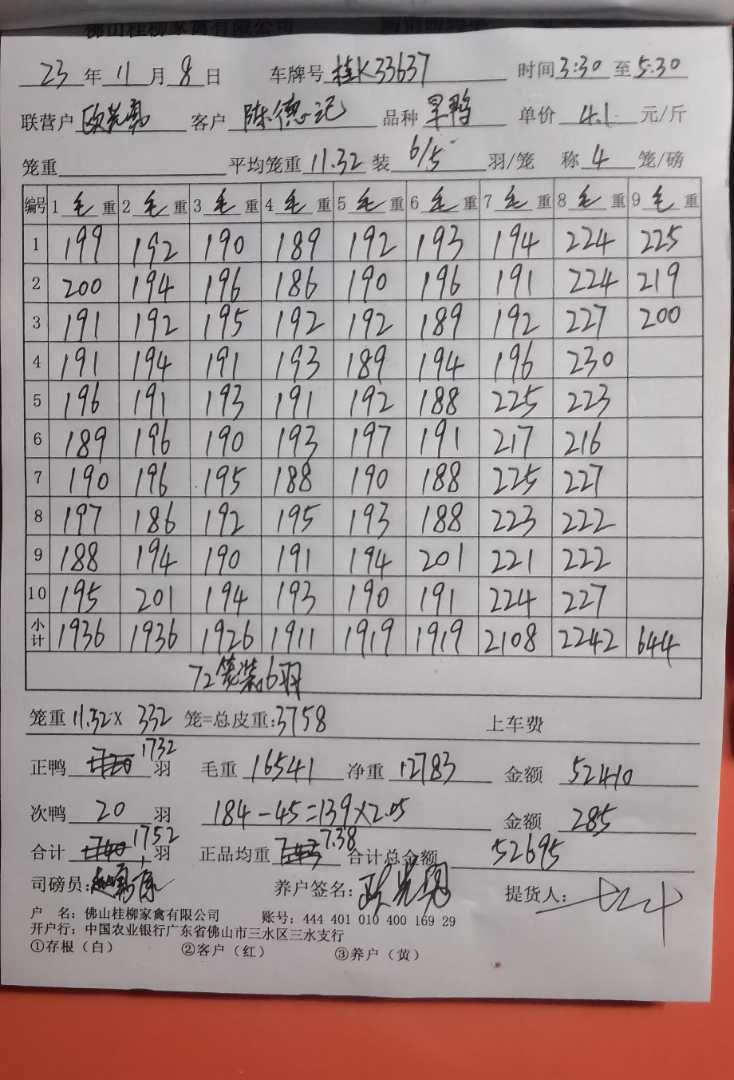 佛山桂柳家禽有限公司
23 年 11 月 8 日 车牌号 桂K33637 时间 3:30 至 5:30
联营户 客户 陈德记 品种 旱鸭 单价 4.1 元/斤
笼重 平均笼重 11.32 装 6/5 羽/笼 称 4 笼/磅
编号 1 毛 重 2 毛 重 3 毛 重 4 毛 重 5 毛 重 6 毛 重 7 毛 重 8 毛 重 9 毛 重
1 199 192 190 189 192 193 194 224 225
2 200 194 196 186 190 196 191 224 219
3 191 192 195 192 192 189 192 227 200
4 191 194 191 193 189 194 196 230
5 196 191 193 191 192 188 225 223
6 189 196 190 193 197 191 217 216
7 190 196 195 188 190 188 225 227
8 197 186 192 195 193 188 223 222
9 188 194 190 191 194 201 221 222
10 195 201 194 193 190 191 224 227
小计 1936 1936 1926 1911 1919 1919 2108 2242 644
72笼装6羽
笼重 11.32 X 332 笼=总皮重:3758 上车费
正鸭 1732 羽 毛重 16541 净重 12783 金额 52410
次鸭 20 羽 184-45=139X2.05 金额 285
合计 1752 羽 正品均重 7.38 合计总金额 52695
司磅员: 养户签名: 提货人:
户 名: 佛山桂柳家禽有限公司 账号: 444 401 010 400 169 29
开户行: 中国农业银行广东省佛山市三水区三水支行
①存根（白） ②客户（红） ③养户（黄）